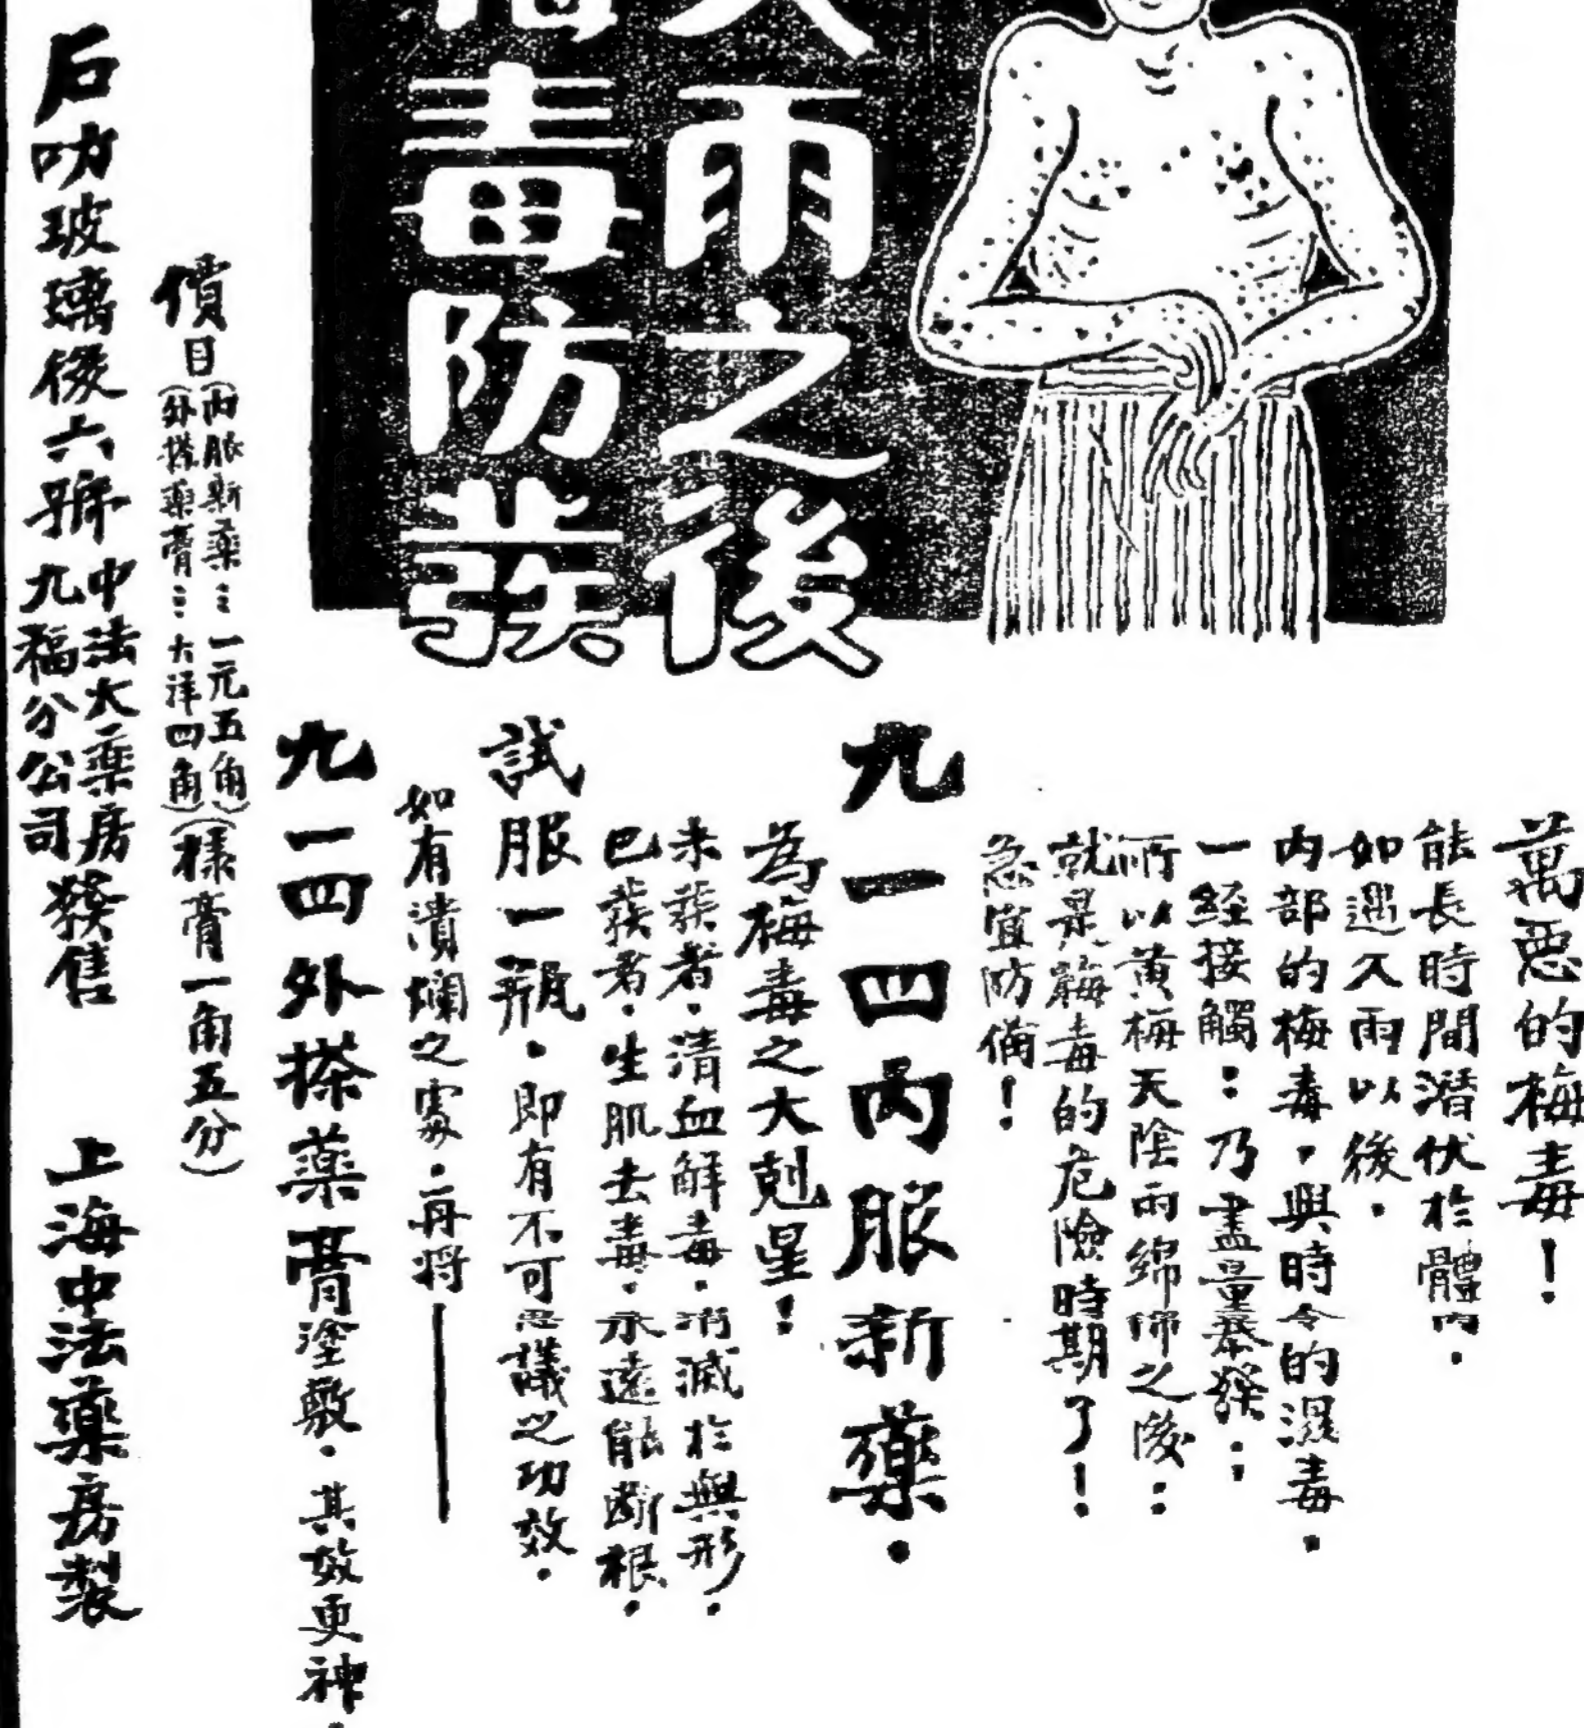 雨之後
毒防發
萬惡的梅毒！
能長時間潛伏於體內．
如遇久雨以後．
內部的梅毒，與時令的濕毒．
一經接觸：乃盡量暴發；
所以黃梅天陰雨綿綿之後：
就是梅毒的危險時期了！
急宜防備！
九一四內服新藥．
為梅毒之大剋星！
未發者．清血解毒．消滅於無形．
已發者．生肌去毒．永遠能斷根．
試服一瓶．即有不可思議之功效．
如有潰爛之處．再將——
九一四外搽薬膏塗敷．其效更神．
價目（內服新薬⋮一元五角）
（外搽薬膏⋮大洋四角）（樣膏一角五分）
石叻玻璃後六號 中法大薬房
九福分公司 發售 上海中法藥房製